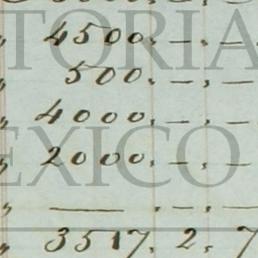 „ 4500. – . –
„ 500. – . –
„ 4000. – . –
„ 2000. – . –
„ —— . – . –
„ 3517. 2. 7
TORIA
EXICO